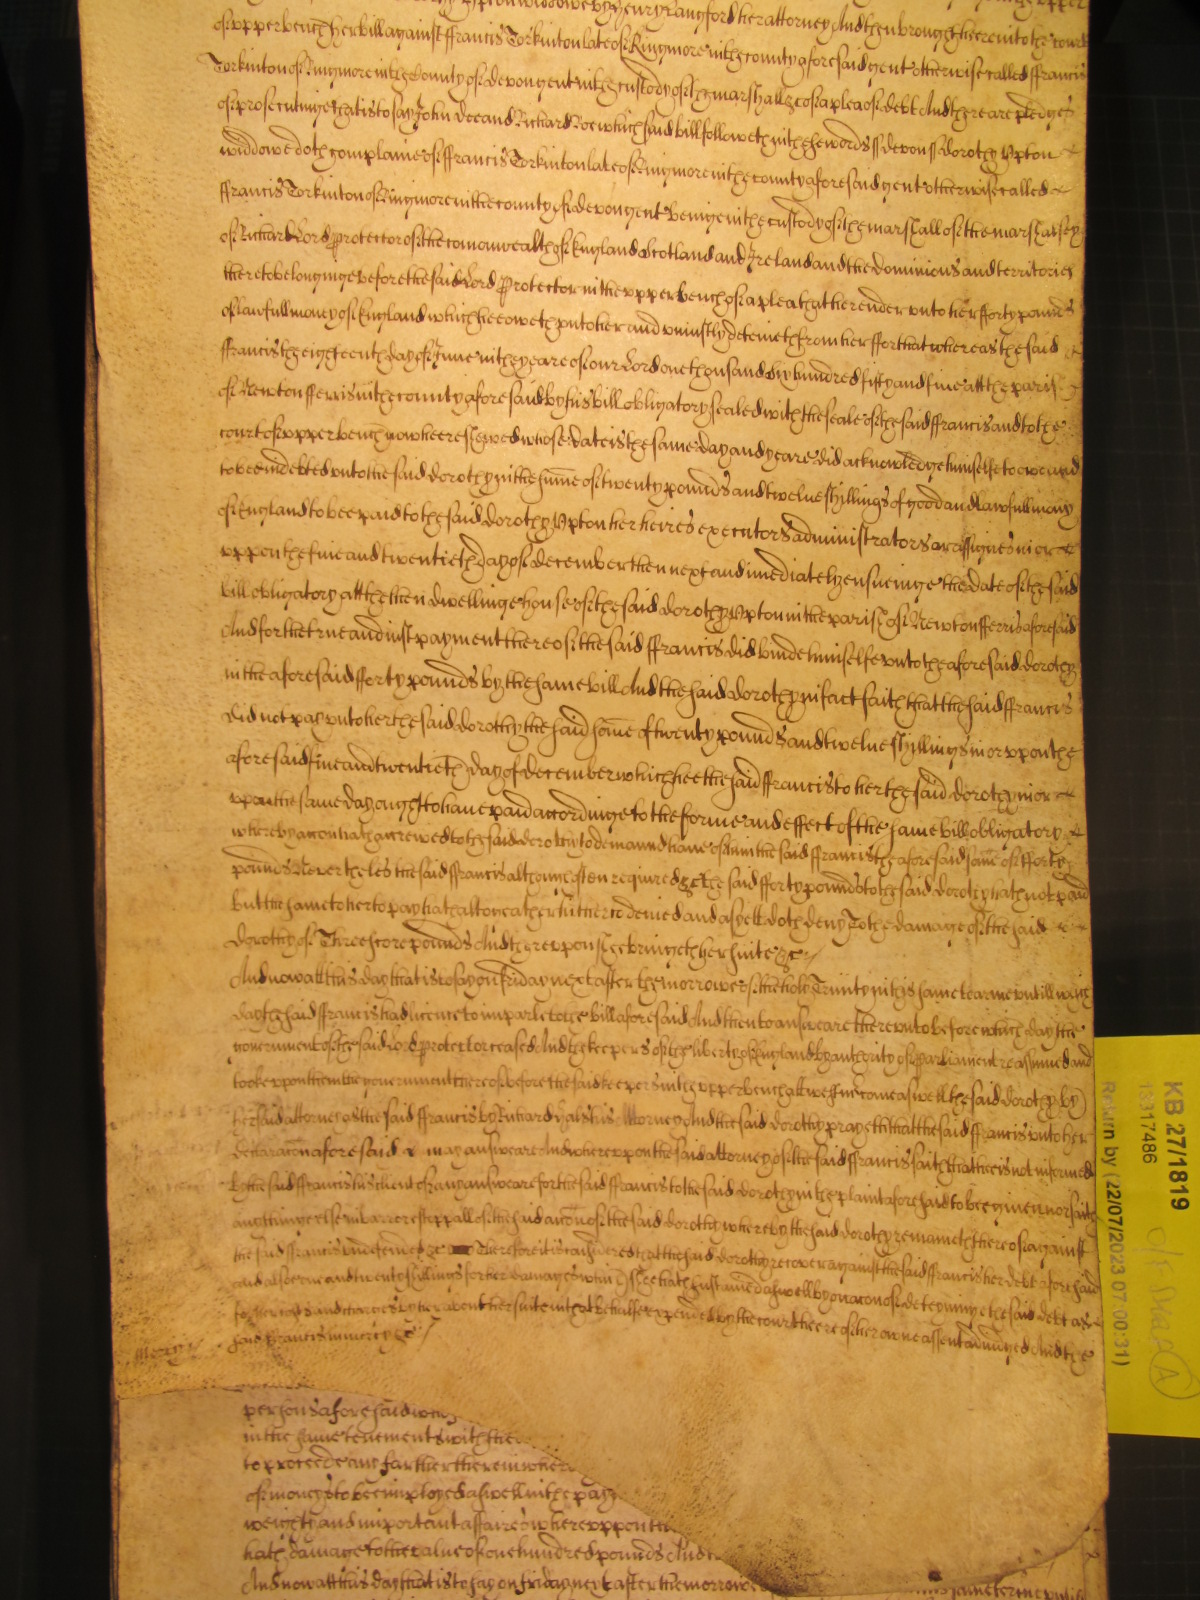 Upton widdowe by Henry Langford her attorney And then brought here into the court
of vpper bench her bill against ffrancis Torkinton late of Kingmore in the county aforesaid gent otherwise called ffrancis
Torkinton of Kingmore in the County of devon gent in the custody of the marshall &c of a plea of debt And there are pledges
of prosecutinge that is to say John dee and Richard Roe which said bill followeth in these words ss devon ss dorothy Vpton
widdowe doth complaine of ffrancis Torkinton late of Kingmore in the county aforesaid gent otherwise called
ffrancis Torkinton of Kingmore in the county of devon gent beinge in the custody of the marshall of the marshalsey
of Richard Lord protector of the comonwealth of England Scotland and Ireland and the dominions and territories
thereto belonginge before the said Lord Protector in the vpper bench of a plea that he render vnto her fforty pounds
of lawfull money of England which hee oweth vnto her and vniustly deteineth from her ffor that whereas the said
ffrancis the eighteenth day of June in the yeare of our Lord one thousand six hundred fifty and fiue att the parish
of Newton fferris in the county aforesaid by his bill obligatory sealed with the seale of the said ffrancis and to the
court of vpper bench now heere shewed whose date is the same day and yeare did acknowledge himselfe to owe and
to bee indebted vnto the said dorothy in the sume of twenty pounds and twelue shillings of good and lawfull mony
of England to bee paid to the said dorothy Vpton her heires executors administrators or assignes in or
vppon the fiue and twentieth day of december then next and imediately ensueinge the date of the said
bill obligatory att the then dwellinge house of the said dorothy Vpton in the parish of Newton fferris aforesaid
And for the true and iust payment thereof the said ffrancis did binde himselfe vnto the aforesaid dorothy
in the aforesaid fforty pounds by the same bill And the said dorothy in fact saith that the said ffrancis
did not pay vnto her the said dorothy the said some of twenty pounds and twelue shillings in or vppon the
aforesaid fiue and twentieth day of december which hee the said ffrancis to her the said dorothy in or
vpon the same day ought to haue paid accordinge to the forme and effect of the same bill obligatory
whereby accon hath accrewed to the said dorothy to demaund & haue of him the said ffrancis the aforesaid some of fforty
pounds Neverthelesse the said ffrancis although often required &c the said fforty pounds to the said dorothy hath not paid
but the same to her to pay hath altogeather hitherto denied and as yett doth deny To the damage of the said
dorothy of Threescore pounds And thereupon shee bringeth her suite &c
And now att this day that is to say on friday next after the morrowe of the holy Trinity in this same tearme vntill which
day the said ffrancis had licence to imparle to the bill aforesaid And then to answeare therevnto before which day the
gouernment of the said Lord protector ceased And the keepers of the liberty of England by authority of Parliament reassumed and
tooke vpon them the gouernment thereof before the said keepers in the vpper bench att Westmr come aswell the said dorothy by
her said attorney as the said ffrancis by Richard his Attorney And the said dorothy prayeth that the said ffrancis vnto her
declaracon aforesaid may answeare And wherevppon the said attorney of the said ffrancis saith that hee is not informed
by the said ffrancis his client of any answeare for the said ffrancis to the said dorothy in the plaint aforesaid to bee giuen nor saith
any thinge else in barr or estoppall of the said accon of the said dorothy whereby the said dorothy remaineth thereof against
the said ffrancis vndefended &c Therefore it is considered that the said dorothy recover against the said ffrancis her debt aforesaid
and alsoe one and twenty shillings for her damages which shee hath sustained aswell by occacon of deteyninge the said debt as
for her costs and charges by her about her suite in that behalfe expended by the court here of her owne assent adiudged And the
said ffrancis in mercy &c
Mercy
persons aforesaid
in the same tenements with the
to proceede any farther therein
of moneys to bee imployed aswell in the pay
weighty and important affaires wherevppon
hath damage to the value of one hundred pounds And
And now att this day that is to say on friday next after the morrowe
KB 27/1819
13317486
Return by (22/07/2023 07:00:31)
A